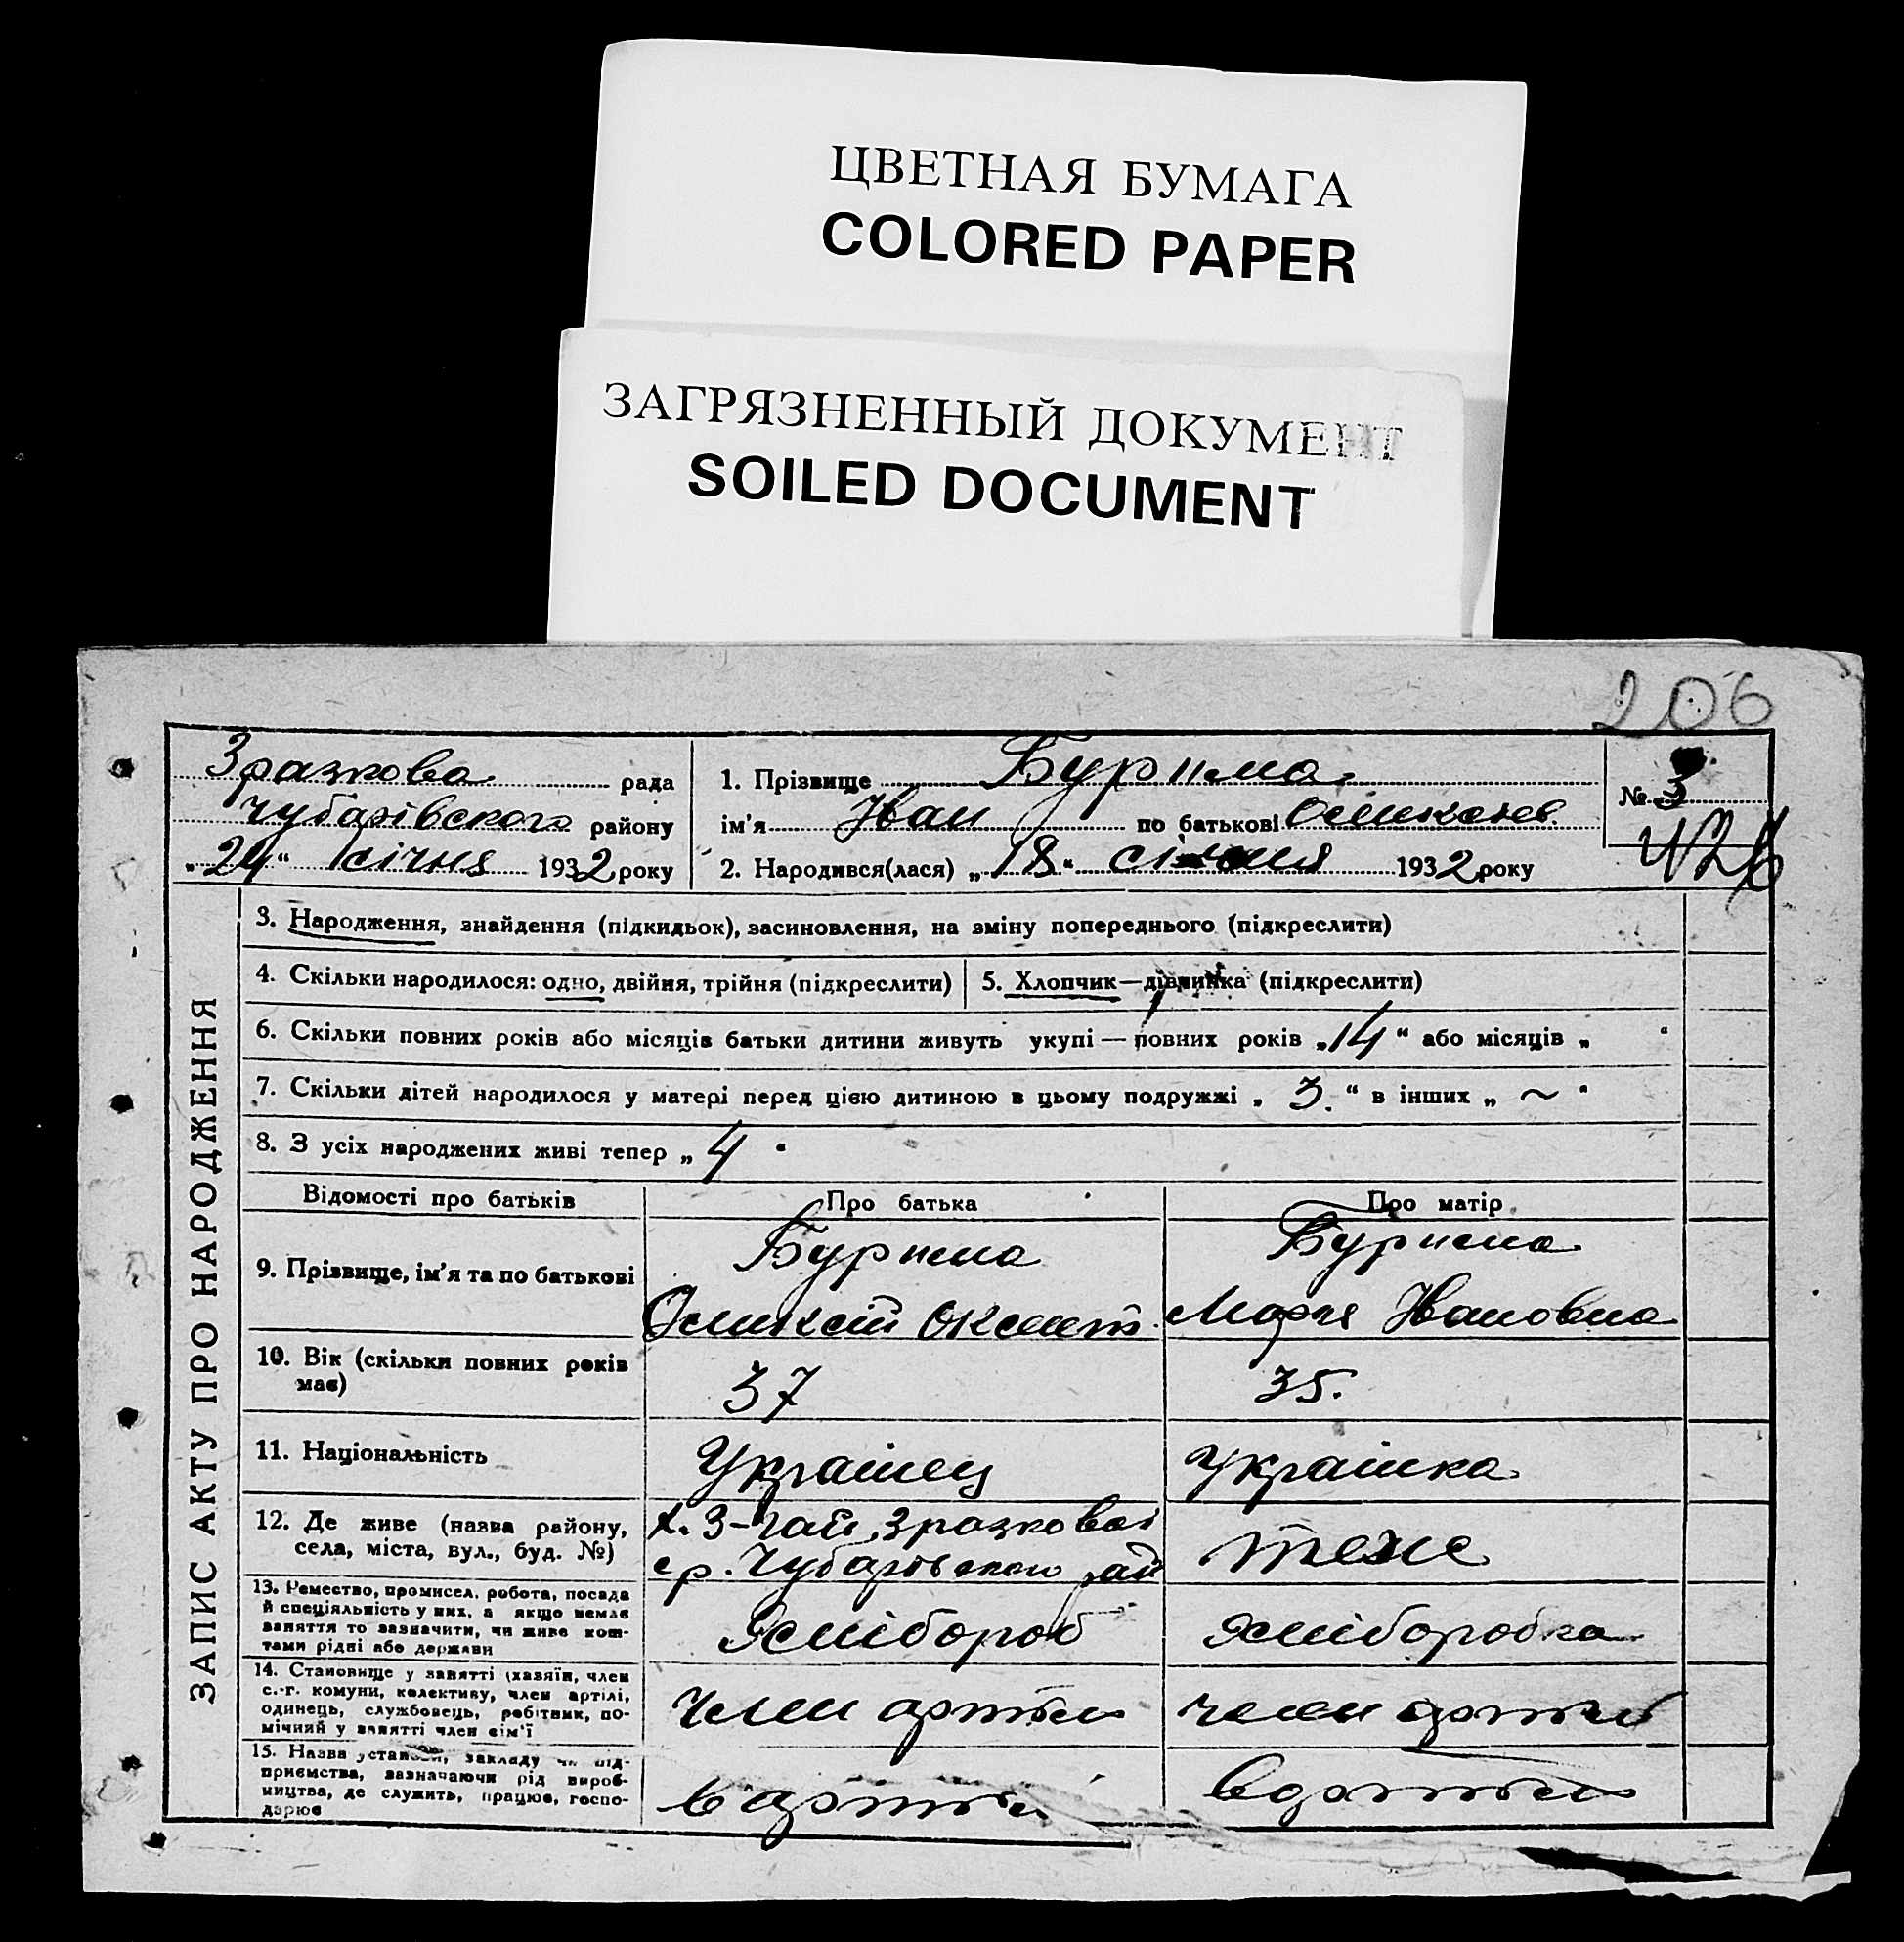 ЦВЕТНАЯ БУМАГА
COLORED PAPER
ЗАГРЯЗНЕННЫЙ ДОКУМЕНТ
SOILED DOCUMENT
206
Зразкова рада
Чубарівского району
„24“ січня 1932 року
1. Прізвище Бурима
ім'я Іван по батькові
2. Народився(лася) „18“ січня 1932 року
№ 3
ЗАПИС АКТУ ПРО НАРОДЖЕННЯ
3. Народження, знайдення (підкидьок), засиновлення, на зміну попереднього (підкреслити)
4. Скільки народилося: одно, двійня, трійня (підкреслити)
5. Хлопчик—дівчинка (підкреслити)
6. Скільки повних років або місяців батьки дитини живуть укупі — повних років „14“ або місяців „ “
7. Скільки дітей народилося у матері перед цією дитиною в цьому подружжі „ 3. “ в інших „ ~ “
8. З усіх народжених живі тепер „ 4 “
Відомості про батьків
Про батька
Про матір
9. Прізвище, ім'я та по батькові
Бурима
Бурима
Марія Івановна
10. Вік (скільки повних років
має)
37
35.
11. Національність
Українец
Українка
12. Де живе (назва району,
села, міста, вул., буд. №)
х. 3-Гай, Зразковой
ср. Чубарівского рай
теже
13. Ремество, промисел, робота, посада
й спеціяльність у них, а якщо немає
заняття то зазначити, чи живе кош-
тами рідні або держави
Хліброб
Хліборобка
14. Становище у занятті (хазяїн, член
с.-г. комуни, колективу, член артілі,
одинець, службовець, робітник, по-
мічний у занятті член сім'ї
Член артели
член артели
15. Назва установи, закладу чи під-
приємства, зазначаючи рід вироб-
ництва, де служить, працює, госпо-
дарює
в артели
в артели